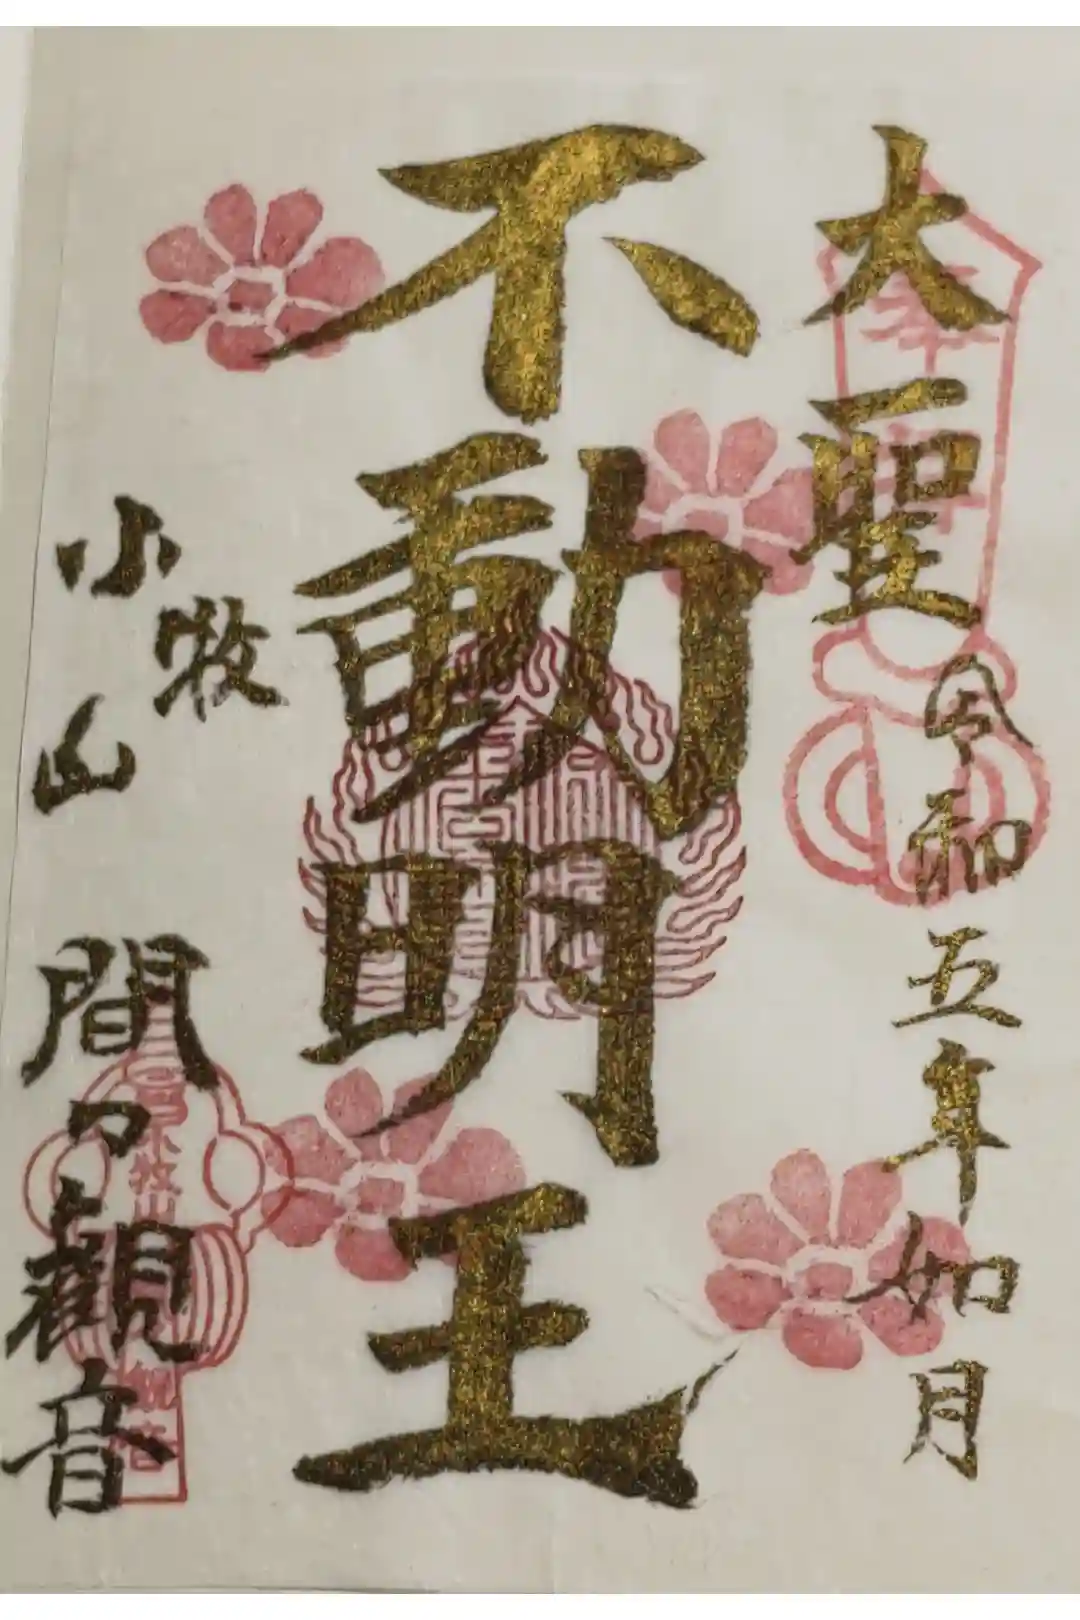 大聖
不動明王
令和五年如月
小牧山
間々観音